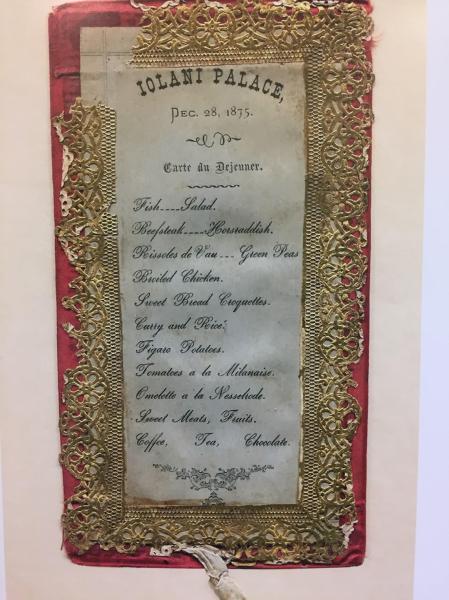 IOLANI PALACE,
DEC. 28, 1875.
Carte du Dejeuner.
Fish----Salad.
Beefsteak----Horsraddish.
Rissoles de Vau --- Green Peas
Broiled Chicken.
Sweet Bread Croquettes.
Curry and Rice.
Figaro Potatoes.
Tomatoes a la Milanaise.
Omelette a la Nesselrode.
Sweet Meats, Fruits.
Coffee, Tea, Chocolate.